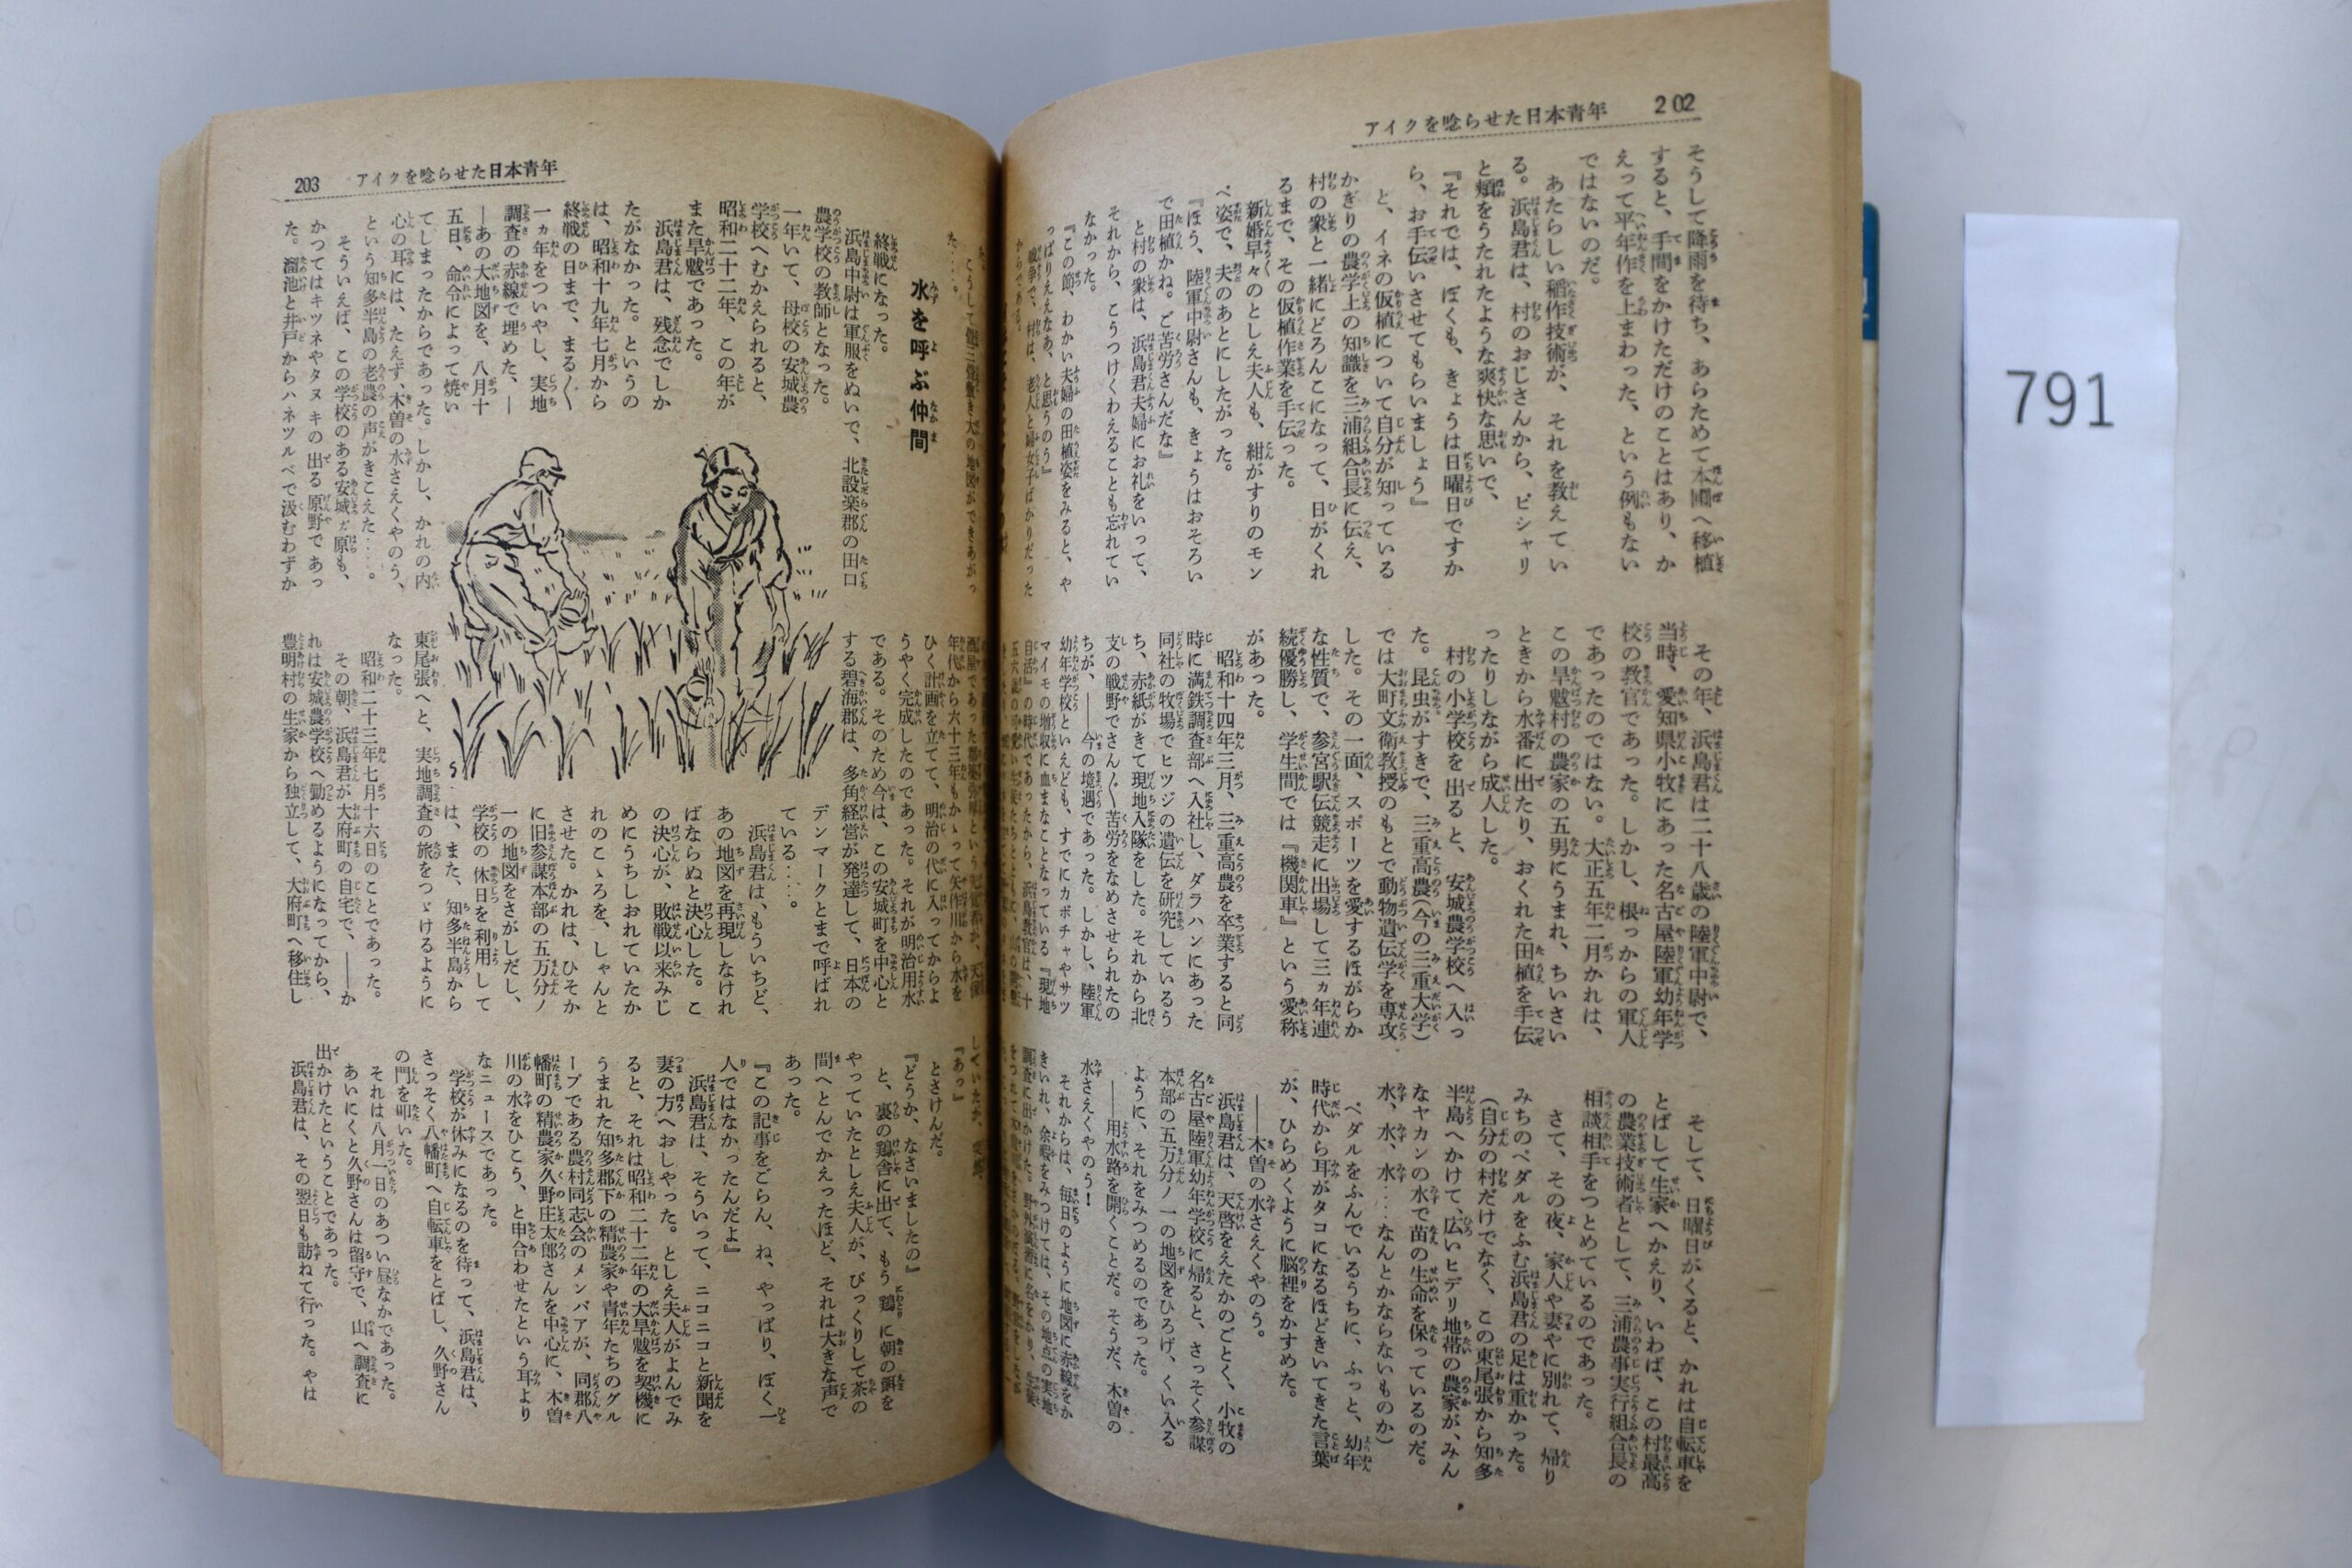 202
アイクを唸らせた日本青年
そうして降雨を待ち、あらためて本圃へ移植
すると、手間をかけただけのことはあり、か
えって平年作を上まわった、という例もない
ではないのだ。
あたらしい稲作技術が、それを教えてい
る。浜島君は、村のおじさんから、ピシャリ
と頬をうたれたような爽快な思いで、
『それでは、ぼくも、きょうは日曜日ですか
ら、お手伝いさせてもらいましょう』
と、イネの仮植について自分が知っている
かぎりの農学上の知識を三浦組合長に伝え、
村の衆と一緒にどろんこになって、日がくれ
るまで、その仮植作業を手伝った。
新婚早々のとしえ夫人も、紺がすりのモン
ペ姿で、夫のあとにしたがった。
『ほう、陸軍中尉さんも、きょうはおそろい
で田植かね。ご苦労さんだな』
と村の衆は、浜島君夫婦にお礼をいって、
それから、こうつけくわえることも忘れてい
なかった。
『この節、わかい夫婦の田植姿をみると、や
っぱりええなあ、と思うのう』
戦争で、村は、老人と婦女子ばかりだった
からである。
その年、浜島君は二十八歳の陸軍中尉で、
当時、愛知県小牧にあった名古屋陸軍幼年学
校の教官であった。しかし、根っからの軍人
であったのではない。大正五年二月かれは、
この旱魃村の農家の五男にうまれ、ちいさい
ときから水番に出たり、おくれた田植を手伝
ったりしながら成人した。
村の小学校を出ると、安城農学校へ入っ
た。昆虫がすきで、三重高農(今の三重大学)
では大町文衛教授のもとで動物遺伝学を専攻
した。その一面、スポーツを愛するほがらか
な性質で、参宮駅伝競走に出場して三ヵ年連
続優勝し、学生間では『機関車』という愛称
があった。
昭和十四年三月、三重高農を卒業すると同
時に満鉄調査部へ入社し、ダラハンにあった
同社の牧場でヒツジの遺伝を研究しているう
ち、赤紙がきて現地入隊をした。それから北
支の戦野でさん〴〵苦労をなめさせられたの
ちが、――今の境遇であった。しかし、陸軍
幼年学校といえども、すでにカボチャやサツ
マイモの増収に血まなことなっている『現地
自活』の時代であったから、浜島教官は、十
そして、日曜日がくると、かれは自転車を
とばして生家へかえり、いわば、この村最高
の農業技術者として、三浦農事実行組合長の
相談相手をつとめているのであった。
さて、その夜、家人や妻やに別れて、帰り
みちのペダルをふむ浜島君の足は重かった。
(自分の村だけでなく、この東尾張から知多
半島へかけて、広いヒデリ地帯の農家が、みん
なヤカンの水で苗の生命を保っているのだ。
水、水、水……なんとかならないものか)
ペダルをふんでいるうちに、ふっと、幼年
時代から耳がタコになるほどきいてきた言葉
が、ひらめくように脳裡をかすめた。
――木曽の水さえくやのう。
浜島君は、天啓をえたかのごとく、小牧の
名古屋陸軍幼年学校に帰ると、さっそく参謀
本部の五万分ノ一の地図をひろげ、くい入る
ように、それをみつめるのであった。
――用水路を開くことだ。そうだ、木曽の
水さえくやのう!
それからは、毎日のように地図に赤線をか
きいれ、余暇をみつけては、その地点の実地
203
アイクを唸らせた日本青年
た……。
水を呼ぶ仲間
終戦になった。
浜島中尉は軍服をぬいで、北設楽郡の田口
農学校の教師となった。
一年いて、母校の安城農
学校へむかえられると、
昭和二十二年、この年が
また旱魃であった。
浜島君は、残念でしか
たがなかった。というの
は、昭和十九年七月から
終戦の日まで、まる〳〵
一ヵ年をついやし、実地
調査の赤線で埋めた、―
―あの大地図を、八月十
五日、命令によって焼い
てしまったからであった。しかし、かれの内
心の耳には、たえず、木曽の水さえくやのう、
という知多半島の老農の声がきこえた……。
そういえば、この学校のある安城ガ原も、
かつてはキツネやタヌキの出る原野であっ
た。溜池と井戸からハネツルベで汲むわずか
年代から六十三年もかゝって矢作川から水を
ひく計画を立てて、明治の代に入ってからよ
うやく完成したのであった。それが明治用水
である。そのため今は、この安城町を中心と
する碧海郡は、多角経営が発達して、日本の
デンマークとまで呼ばれ
ている……。
浜島君は、もういちど、
あの地図を再現しなけれ
ばならぬと決心した。こ
の決心が、敗戦以来みじ
めにうちしおれていたか
れのこゝろを、しゃんと
させた。かれは、ひそか
に旧参謀本部の五万分ノ
一の地図をさがしだし、
学校の休日を利用して
は、また、知多半島から
東尾張へと、実地調査の旅をつゞけるように
なった。
昭和二十三年七月十六日のことであった。
その朝、浜島君が大府町の自宅で、――か
れは安城農学校へ勤めるようになってから、
豊明村の生家から独立して、大府町へ移住し
『あっ』
とさけんだ。
『どうか、なさいましたの』
と、裏の鶏舎に出て、もう鶏に朝の餌を
やっていたとしえ夫人が、びっくりして茶の
間へとんでかえったほど、それは大きな声で
あった。
『この記事をごらん、ね、やっぱり、ぼく一
人ではなかったんだよ』
浜島君は、そういって、ニコニコと新聞を
妻の方へおしやった。としえ夫人がよんでみ
ると、それは昭和二十二年の大旱魃を契機に
うまれた知多郡下の精農家や青年たちのグル
ープである農村同志会のメンバアが、同郡八
幡町の精農家久野庄太郎さんを中心に、木曽
川の水をひこう、と申合わせたという耳より
なニュースであった。
学校が休みになるのを待って、浜島君は、
さっそく八幡町へ自転車をとばし、久野さん
の門を叩いた。
それは八月一日のあつい昼なかであった。
あいにくと久野さんは留守で、山へ調査に
出かけたということであった。
浜島君は、その翌日も訪ねて行った。やは
791